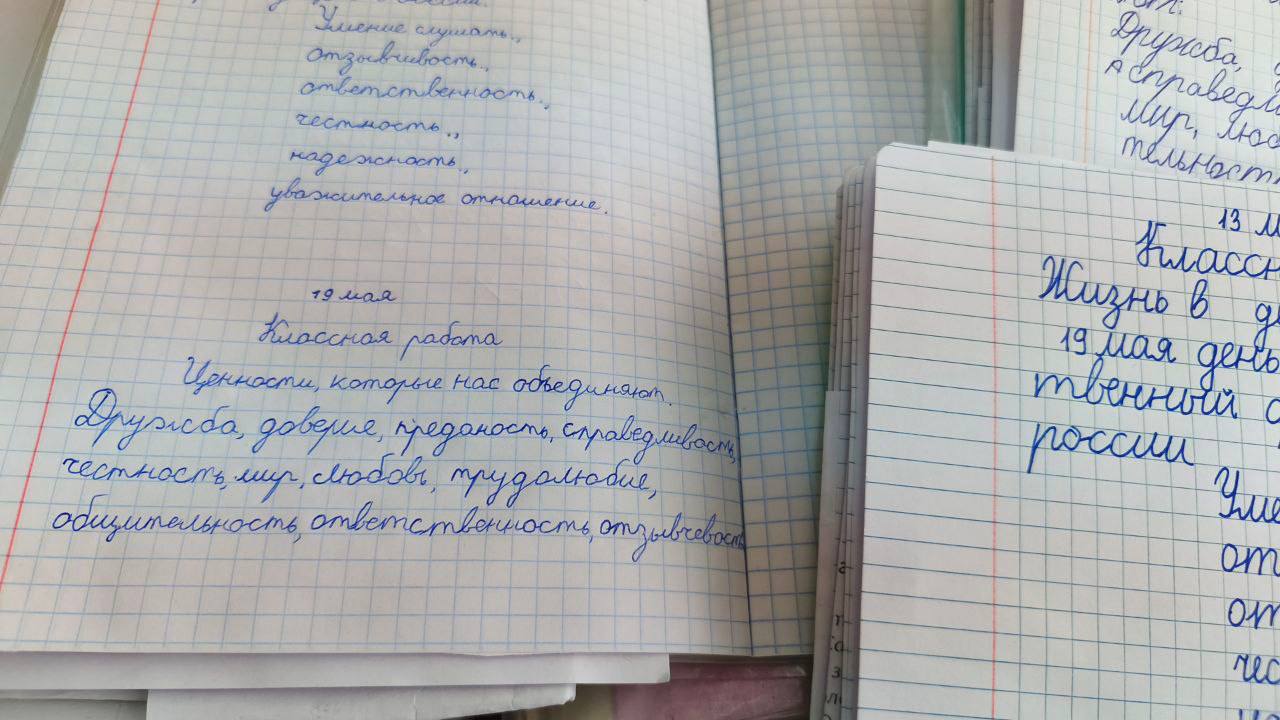 Умение слушать.,
отзывчивость.,
ответственность.,
честность.,
надежность.,
уважительное отношение.
19 мая
Классная работа
Ценности, которые нас объединяют.
Дружба, доверие, преданость, справедливость,
честность, мир, любовь, трудолюбие,
общительность, ответственность, отзывчевость
Дружба,
мир,
13
Жизнь в
19 мая день
твенный
россии